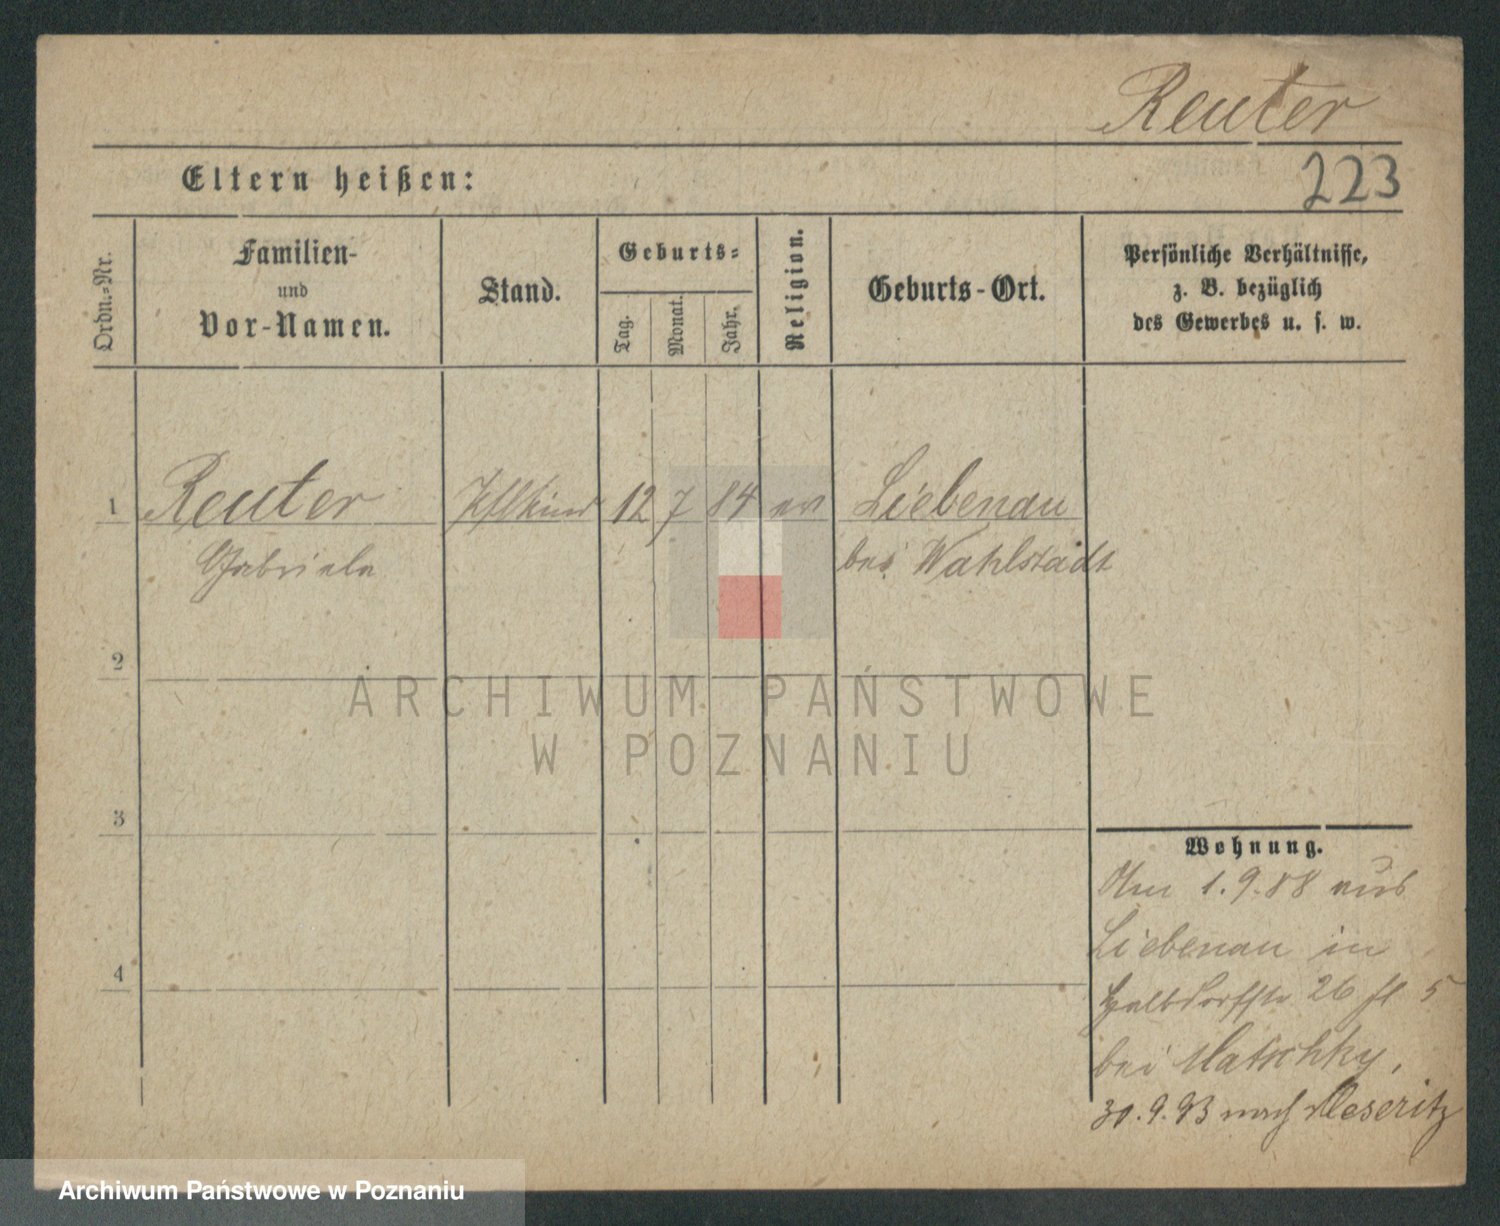 Reuter
223
Eltern heißen:
Ordn.-Nr.
Familien-
und
Vor-Namen.
Stand.
Geburts-
Tag.
Monat.
Jahr.
Religion.
Geburts-Ort.
Persönliche Verhältnisse,
z. B. bezüglich
des Gewerbes u. s. w.
1 Reuter 12 7 84 ev Liebenau
Gabriele bei Wahlstadt
2
ARCHIWUM PAŃSTWOWE
W POZNANIU
3
Wohnung.
1.9.88 aus
Liebenau in
Halbdorfstr 26 fl 5
bei Matschky,
30.9.93 nach Meseritz
4
Archiwum Państwowe w Poznaniu